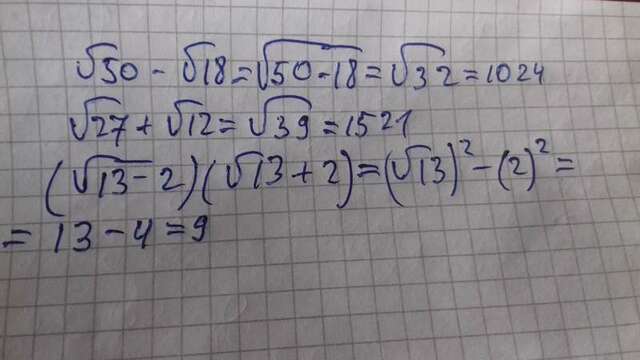 √50 - √18 = √50-18 = √32 = 1024
√27 + √12 = √39 = 1521
(√13-2)(√13+2) = (√13)² - (2)² =
= 13 - 4 = 9